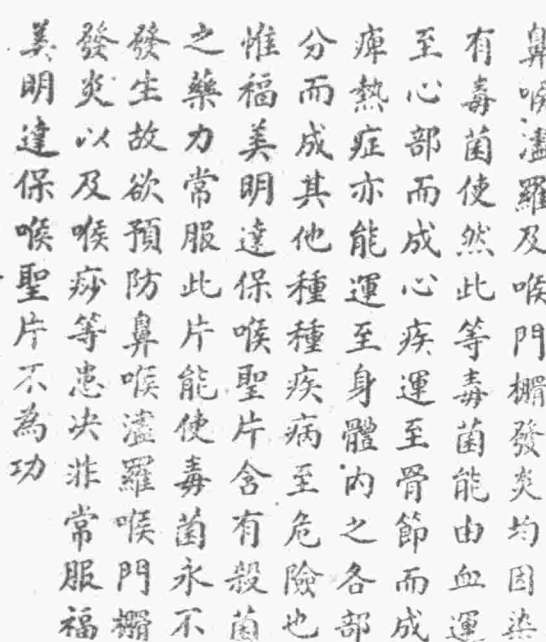 鼻喉瀘羅及喉門榍發炎均因染
有毒菌使然此等毒菌能由血運
至心部而成心疾運至骨節而成
痺熱症亦能運至身體内之各部
分而成其他種種疾病至危險也
惟福美明達保喉聖片含有殺菌
之藥力常服此片能使毒菌永不
發生故欲預防鼻喉瀘羅喉門榍
發炎以及喉痧等患决非常服福
美明達保喉聖片不為功